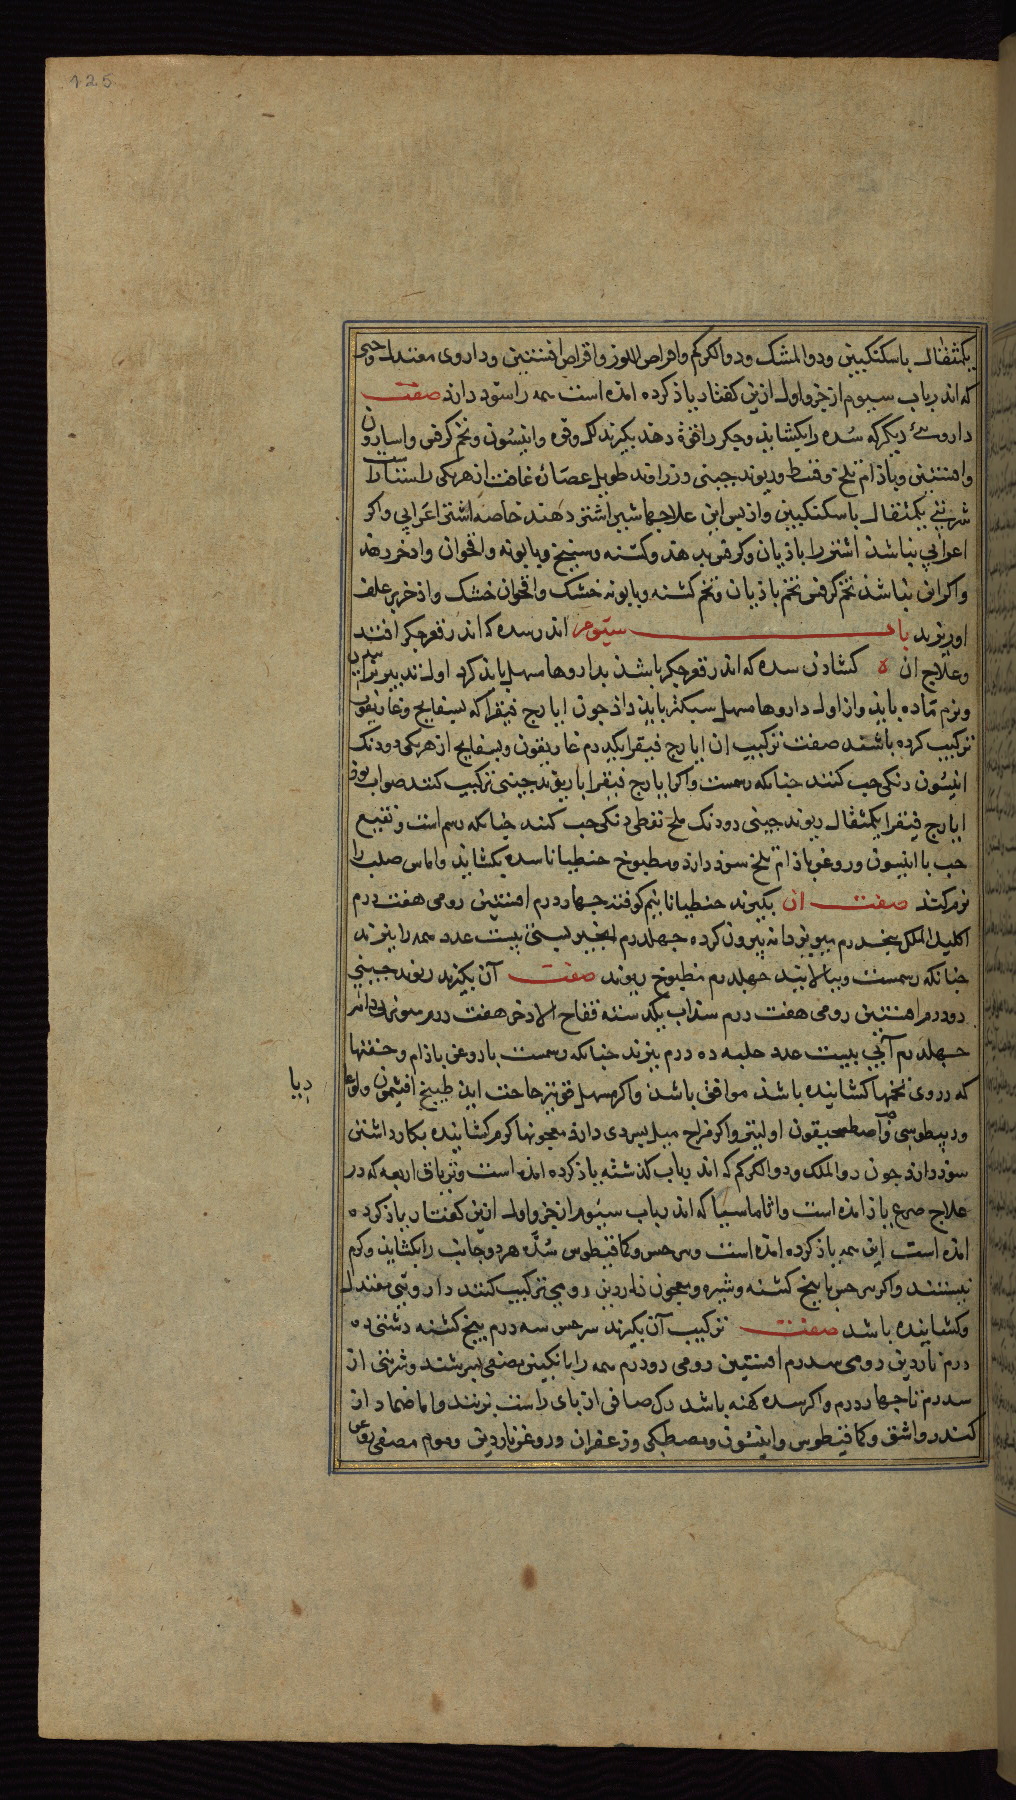 125
یکمثقال باسکنکبین ودوالمشک ودوالکرکم واقراص اللوز واقراص افسنتین وداروی معتدل وحبی
که اندر باب سیوم از جزو اول ازین کفتار یاذ کرده امذه است همه را سوذ دارذ صفت
داروئی دیگر که سُده را بکشایذ وجکر را قوة دهذ بکیرند لک وفوه وانیسُون وتخم کرفس واسارون
وافسنتین وباذام تلخ وقسط وریوند جینی وزراوند طویل عصارۀ غافت از هر یکی راستاراست
شربتی یکمثقال باسکنکبین واز پس این علاجها شیر اشتر دهند خاصه اشتر اعرابی واکر
اعرابی نباشذ اشتر را باذیان وکرفس دهند وکشنه وسنبخ وبابونه واقحوان واذخر دهند
واکر این نباشذ تخم کرفس تخم باذیان وتخم کشنه وبابونه خشک واقحوان خشک واذخر بر علف
اوریزند باب سیّوم اندر سده که اندر قعر جکر افتد
وعلاج ان ه کشادن سده که اندر قعر جکر باشذ بداروها مسهل بایذ کرد اول تدبیر
ونرم ماده بایذ واز اول داروها مسهل سبکتر بایذ داذ جون ایارج فیقرا که بسفایج وغاریقون
ترکیب کرده باشند صفت ترکیب ان ایارج فیقرا یکدرم غاریقون وبسفایج از هر یکی دودنک
انیسُون دنکی حب کنند جنانکه رسمست واکر ایارج فیقرا باریوند جینی ترکیب کنند صواب بوذ
ایارج فیقرا یکمثقال ریوند جینی دودنک ملح نفطی دنکی حب کنند جنانکه رسم است ونقیع
حب باانیسون وروغن باذام تلخ سوذ دارذ ومطبوخ جنطیانا سده بکشایذ واماس صلب را
نرم کند صفت ان بکیرند جنطیانا نیم کوفته جهار درم افسنتین رومی هفت درم
اکلیل الملک پنجدرم مویز دانه بیرون کرده جهلدرم انجیر بستی بیست عدد همه را بپزند
جنانکه رسمست وبپالایند جهلدرم مطبوخ ریوند صفت آن بکیرند ریوند جینی
دودرم افسنتین رومی هفت درم سذاب یکدسته فقاح الاذخر هفت درم مویز بی دانه
جهلدرم آبی بیست عدد حلبه ده درم بپزند جنانکه رسمست باروغن باذام وحقنها
که دروی تخمها کشاینده باشذ موافق باشذ واکر مسهل قویتر حاجت ایذ طبیخ افیثمون ولوغا
دیا
ودیبطوسی واصطمحیقون اولیتر واکر مزاج میل بسردی دارذ معجونها کرم کشاینده بکار داشتن
سوذ دارذ جون دوالملک ودوالکرکم که اندر باب کذشته یاذ کرده امذه است وتریاق اربعه که در
علاج صرع یاذ امذه است واثاناسیا که اندر باب سیوم از جزو اول ازین کفتار یاذ کرده
امذه است این همه یاذ کرده امذه است وسرخس وکمافیطوس سُدّه هردو جانب را بکشایذ وکرم
نیستند واکر سرخس با بیخ کشنه وشیره ومعجون ناردین رومی ترکیب کنند داروئی معتدل
وکشاینده باشد صفت ترکیب آن بکیرند سرخس سه درم بیخ کشنه دشتی ده
درم ناردین رومی سدرم افسنتین رومی دودرم همه را بانکبین مصفی بسرشند وشربتی از
سدرم تا جهاردرم واکر سده کهنه باشد رک صافی از بای راست بزنند واما ضماد از
کندر واشق وکمافیطوس وانیسُون ومصطکی وزعفران وروغن ناردین وموم مصفی